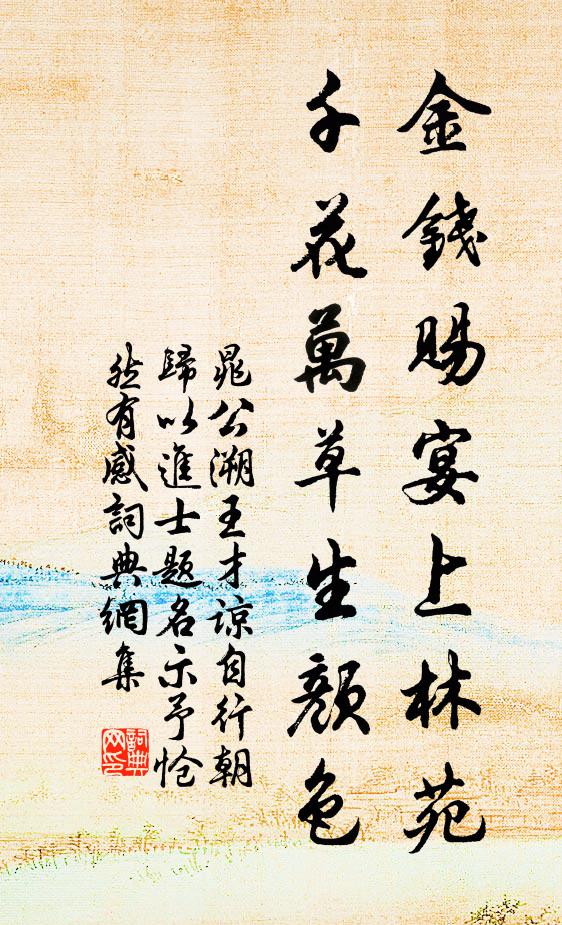 金錢賜宴上林苑
千花萬草生顏色
晁公溯王才諒自行朝
歸以進士題名示予愴
然有感詞典網集
詞典
网印